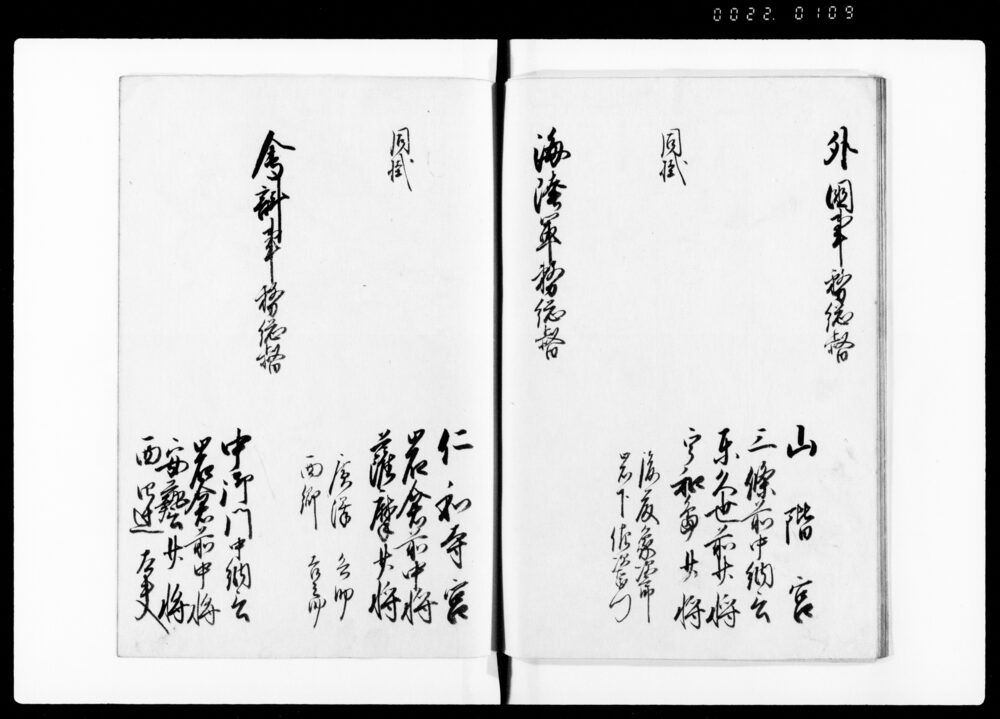 0022.0109
外国事務総督
山階宮
三條前中納言
東久世前少将
宇和島少将
同掛
後藤象次郎
岩下佐次右衛門
海陸軍務総督
仁和寺宮
岩倉前中将
薩摩少将
同掛
広沢兵助
西郷吉之助
会計事務総督
中御門中納言
岩倉前中将
安藝少将
西四辻大夫